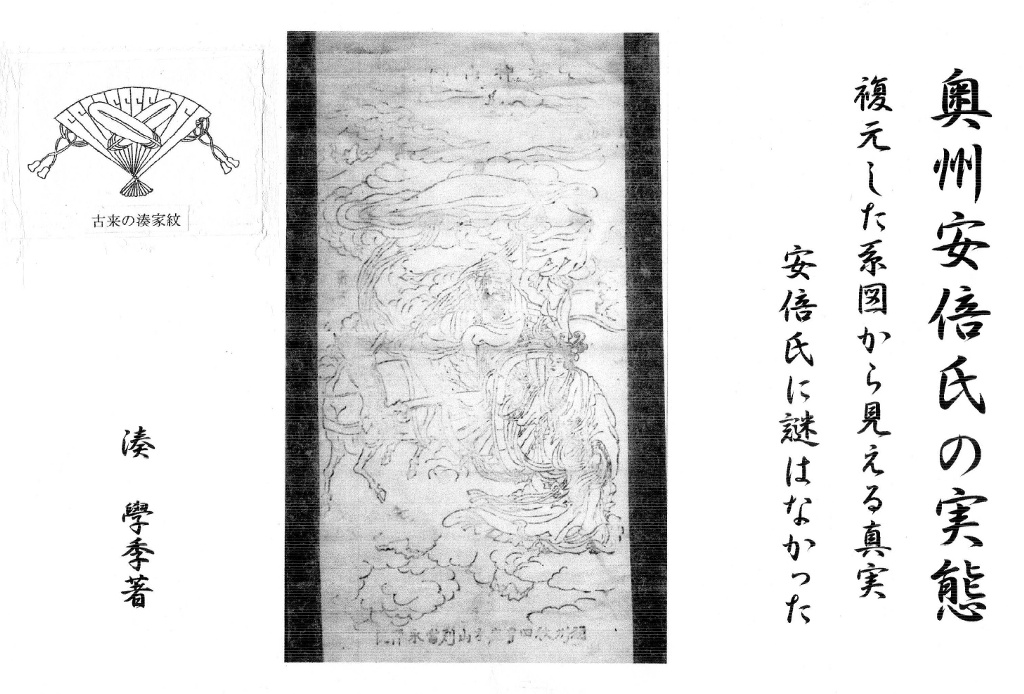 奥州安倍氏の実態
複元した系図から見える真実
安倍氏に謎はなかった
古来の湊家紋
湊 學季著